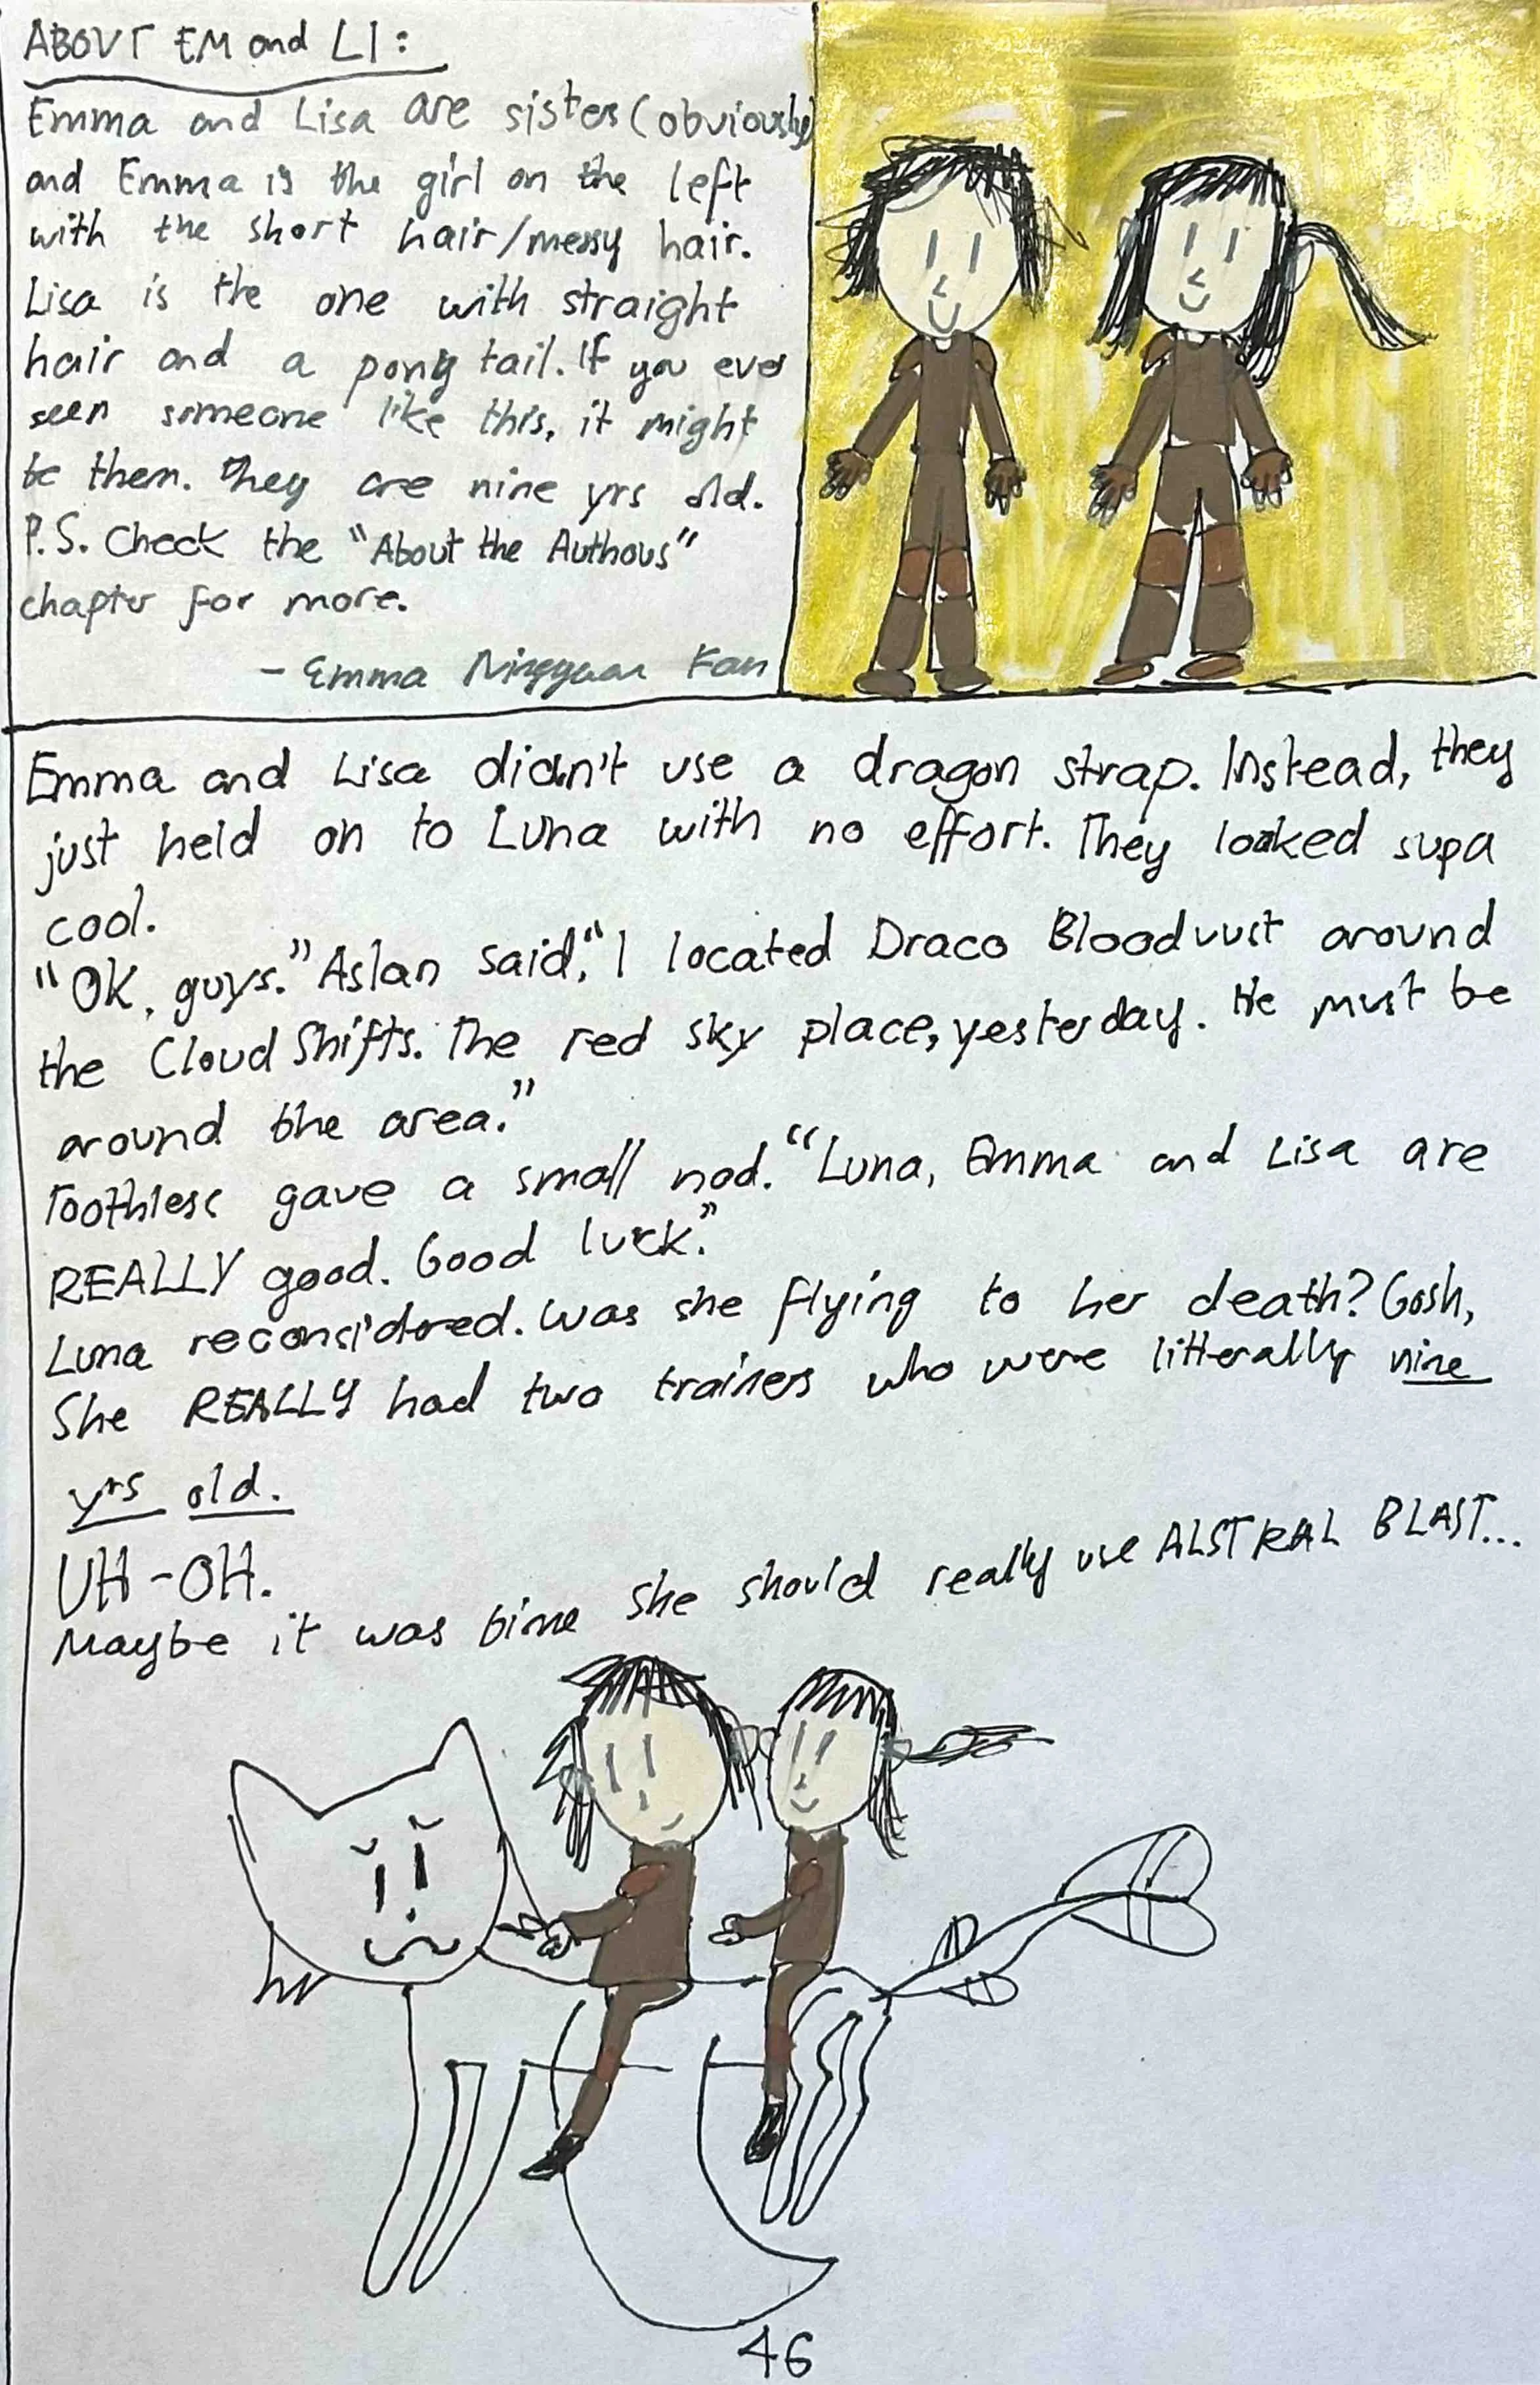 ABOUT EM and LI:
Emma and Lisa are sisters (obviously)
and Emma is the girl on the left
with the short hair/messy hair.
Lisa is the one with straight
hair and a pony tail. If you ever
seen someone like this, it might
be them. They are nine yrs old.
P.S. Check the "About the Authous"
chapter for more.
- Emma Fan
Emma and Lisa didn't use a dragon strap. Instead, they
just held on to Luna with no effort. They looked supa
cool.
"OK, guys." Aslan said, "I located Draco around
the Cloud Shifts. The red sky place, yesterday. He must be
around the area."
Toothless gave a small nod. "Luna, Emma and Lisa are
REALLY good. Good luck."
Luna reconsidered. Was she flying to her death? Gosh,
She REALLY had two trainers who were litterally nine
yrs old.
UH-OH.
Maybe it was time she should really use ALSTRAL BLAST...
46